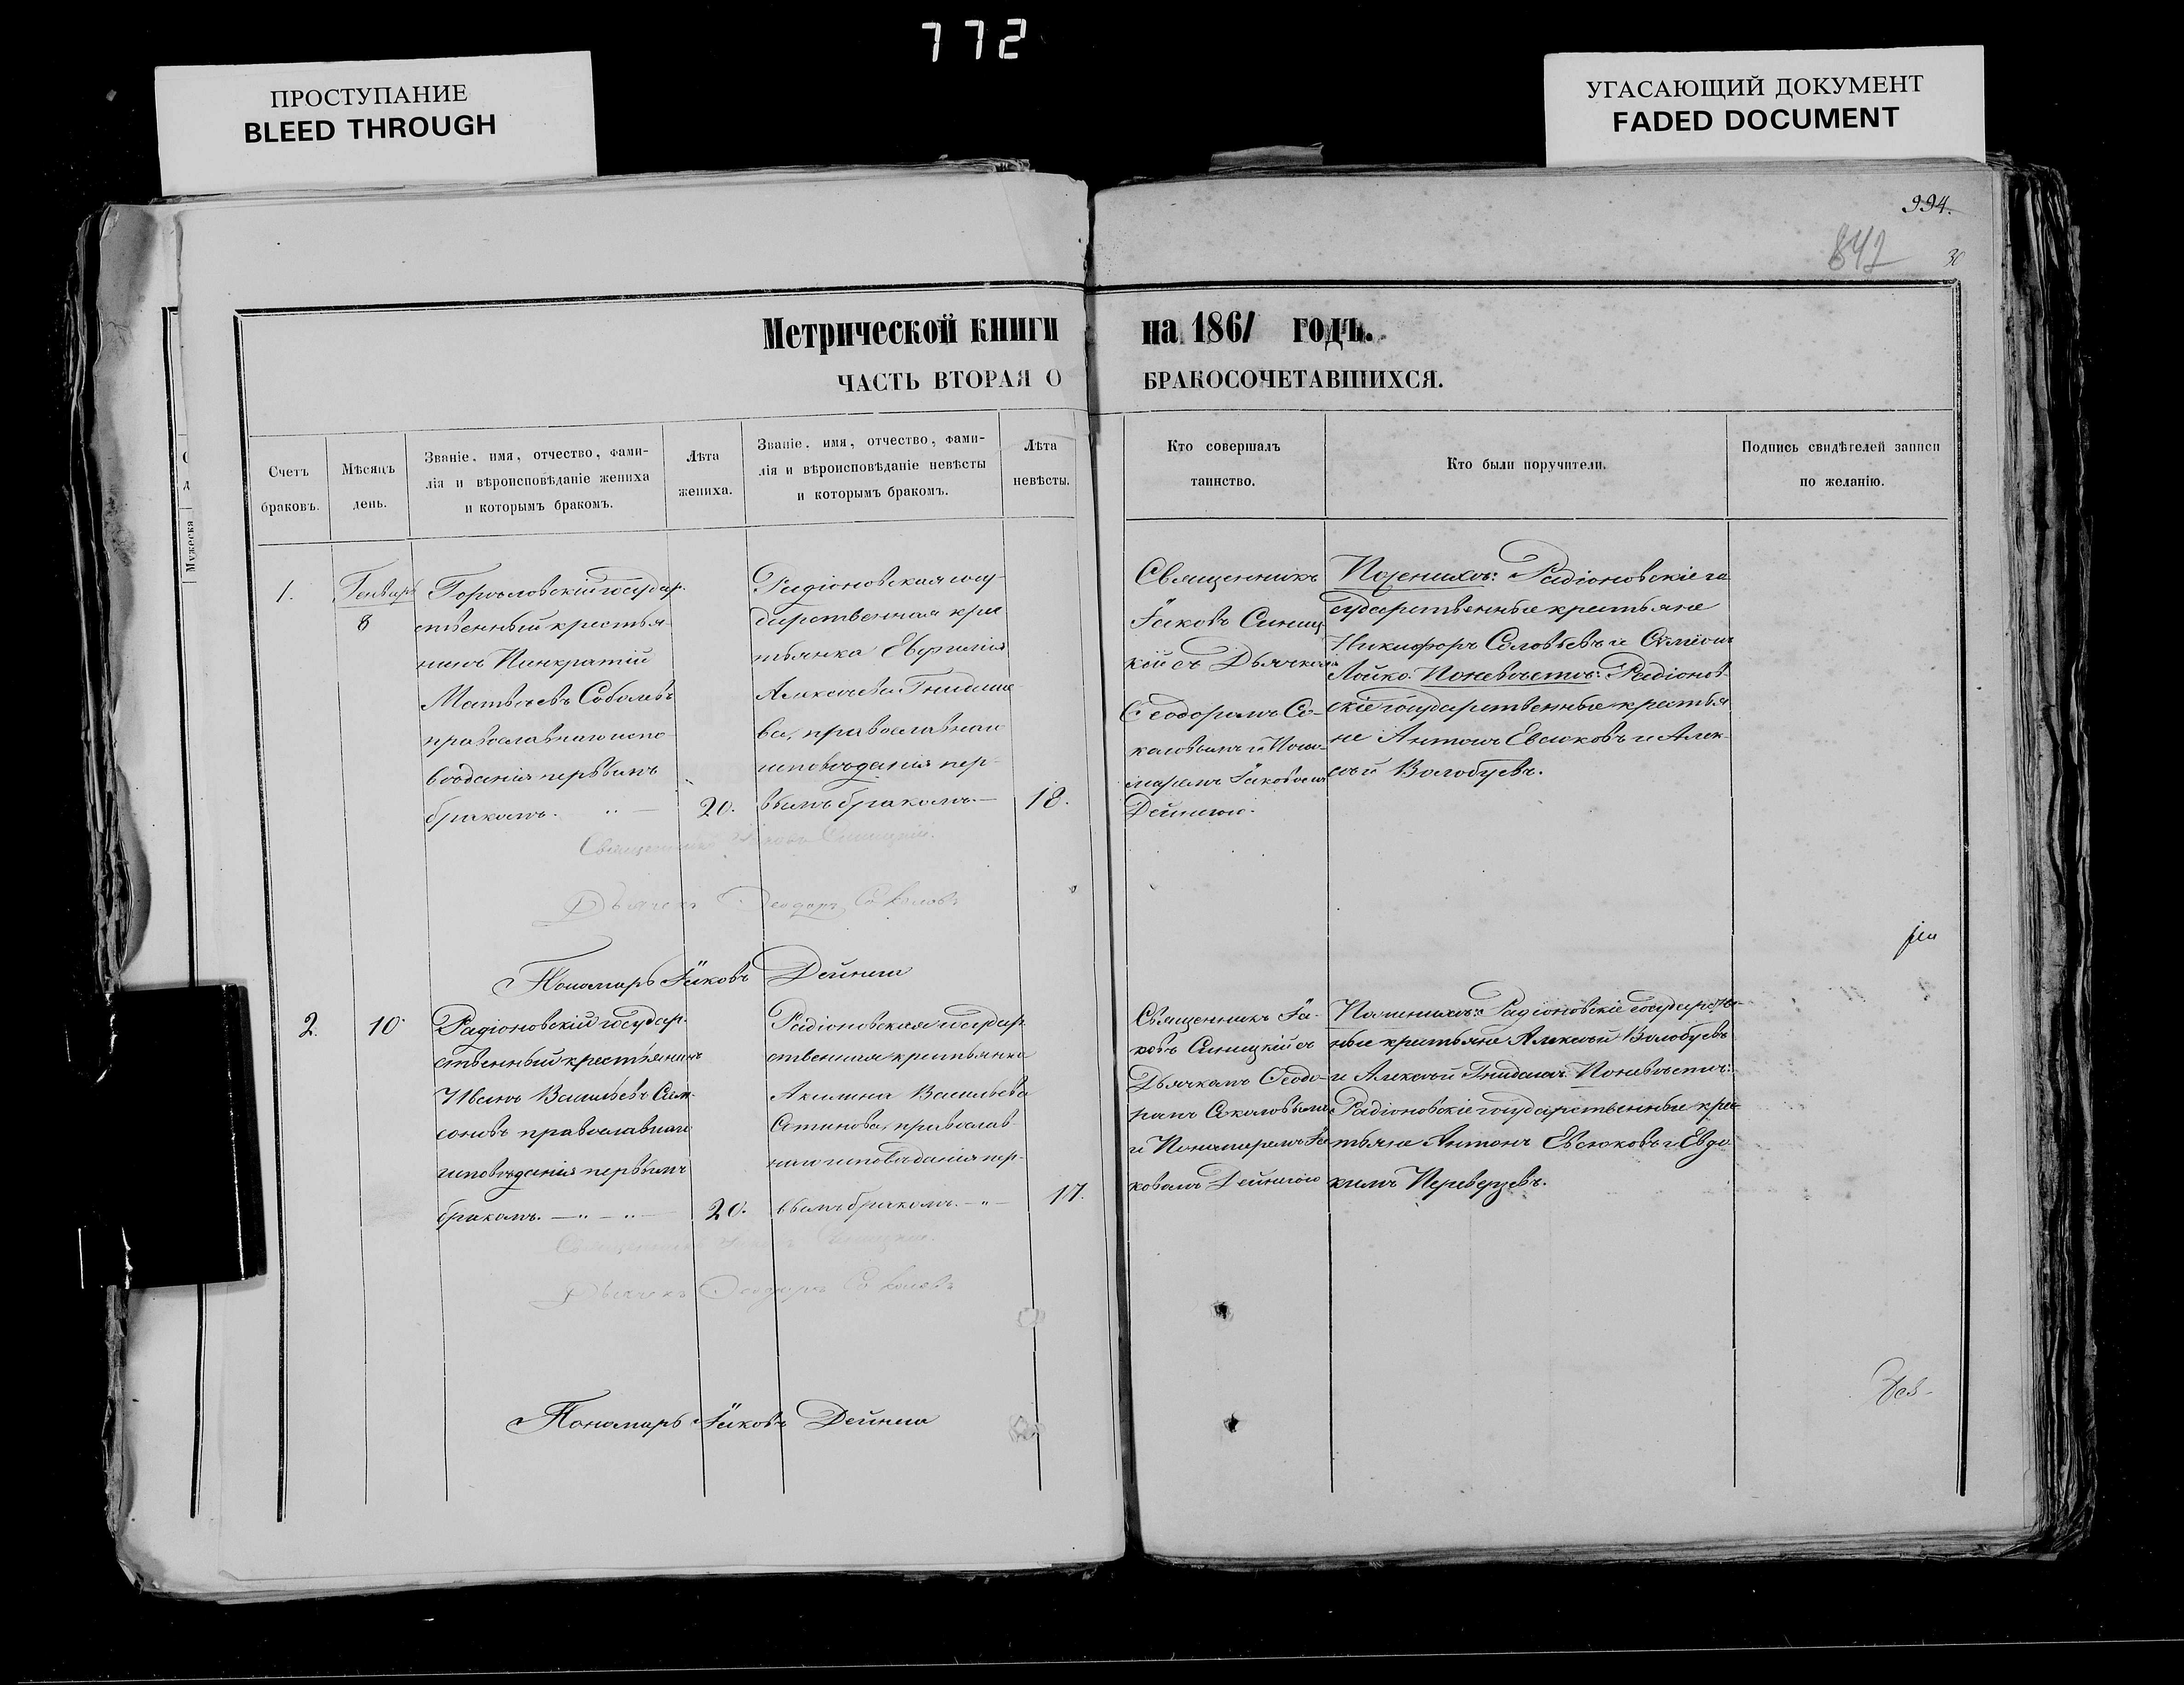 772
ПРОСТУПАНИЕ
BLEED THROUGH
УГАСАЮЩИЙ ДОКУМЕНТ
FADED DOCUMENT
994.
842
30
Метрической книги на 1861 годъ.
ЧАСТЬ ВТОРАЯ О БРАКОСОЧЕТАВШИХСЯ.
Счетъ
браковъ.
Мѣсяцъ
день.
Званіе, имя, отчество, фами-
лія и вѣроисповѣданіе жениха
и которымъ бракомъ.
Лѣта
жениха.
Званіе, имя, отчество, фами-
лія и вѣроисповѣданіе невѣсты
и которымъ бракомъ.
Лѣта
невѣсты.
Кто совершалъ
таинство.
Кто были поручители.
Подпись свидѣтелей записи
по желанію.
Мужеска
1.
Генваръ
8
государ-
ственный крестья-
нинъ Панкратій
Матвѣевъ Соболевъ
православнаго испо-
вѣданія первымъ
бракомъ.
20.
Радіоновская госу-
дарственная кре
тьянка Евфимія
Алексѣева
ва, православнаго
исповѣданія пер-
вымъ бракомъ.—
18.
Священникъ
Іаковъ Синиц
кій съ Дьячком
Ѳеодоромъ Со-
коловымъ и Поно-
маремъ Іаковомъ
Дейнегою.
По женихѣ: Радіоновскіе го
сударственные крестьяне
Никифоръ Соловьевъ и Сѵмеонъ
Лойко. По невѣстѣ: Радіонов-
скіе государственные крестья
не Антонъ Евсюковъ и Алек-
сѣй Волобуевъ.
Священникъ Іаковъ Синицкій.
Дьячекъ Ѳеодоръ Соколовъ
Пономарь Іаковъ Дейнега
2.
10
Радіоновскій государ-
ственный крестьянинъ
Иванъ Васильевъ Сам-
соновъ православнаго
исповѣданія первымъ
бракомъ. — " — " —
20.
Радіоновская государ
ственная крестьянка
Акилина Васильева
православ-
наго исповѣданія пер-
вымъ бракомъ. — " —
17.
Священникъ Іа-
ковъ Синицкій съ
Дьячкомъ Ѳеодо-
ромъ Соколовымъ
и Пономаремъ Іа
ковомъ Дейнегою
По женихѣ: Радіоновскіе государствен-
ные крестьяне Алексѣй Волобуевъ
и Алексѣй По невѣстѣ:
Радіоновскіе государственные крес
тьяне Антонъ Евсюковъ и Евдо
кимъ Переверзевъ.
Священникъ Іаковъ Синицкій.
Дьячекъ Ѳеодоръ Соколовъ
Пономарь Іаковъ Дейнега